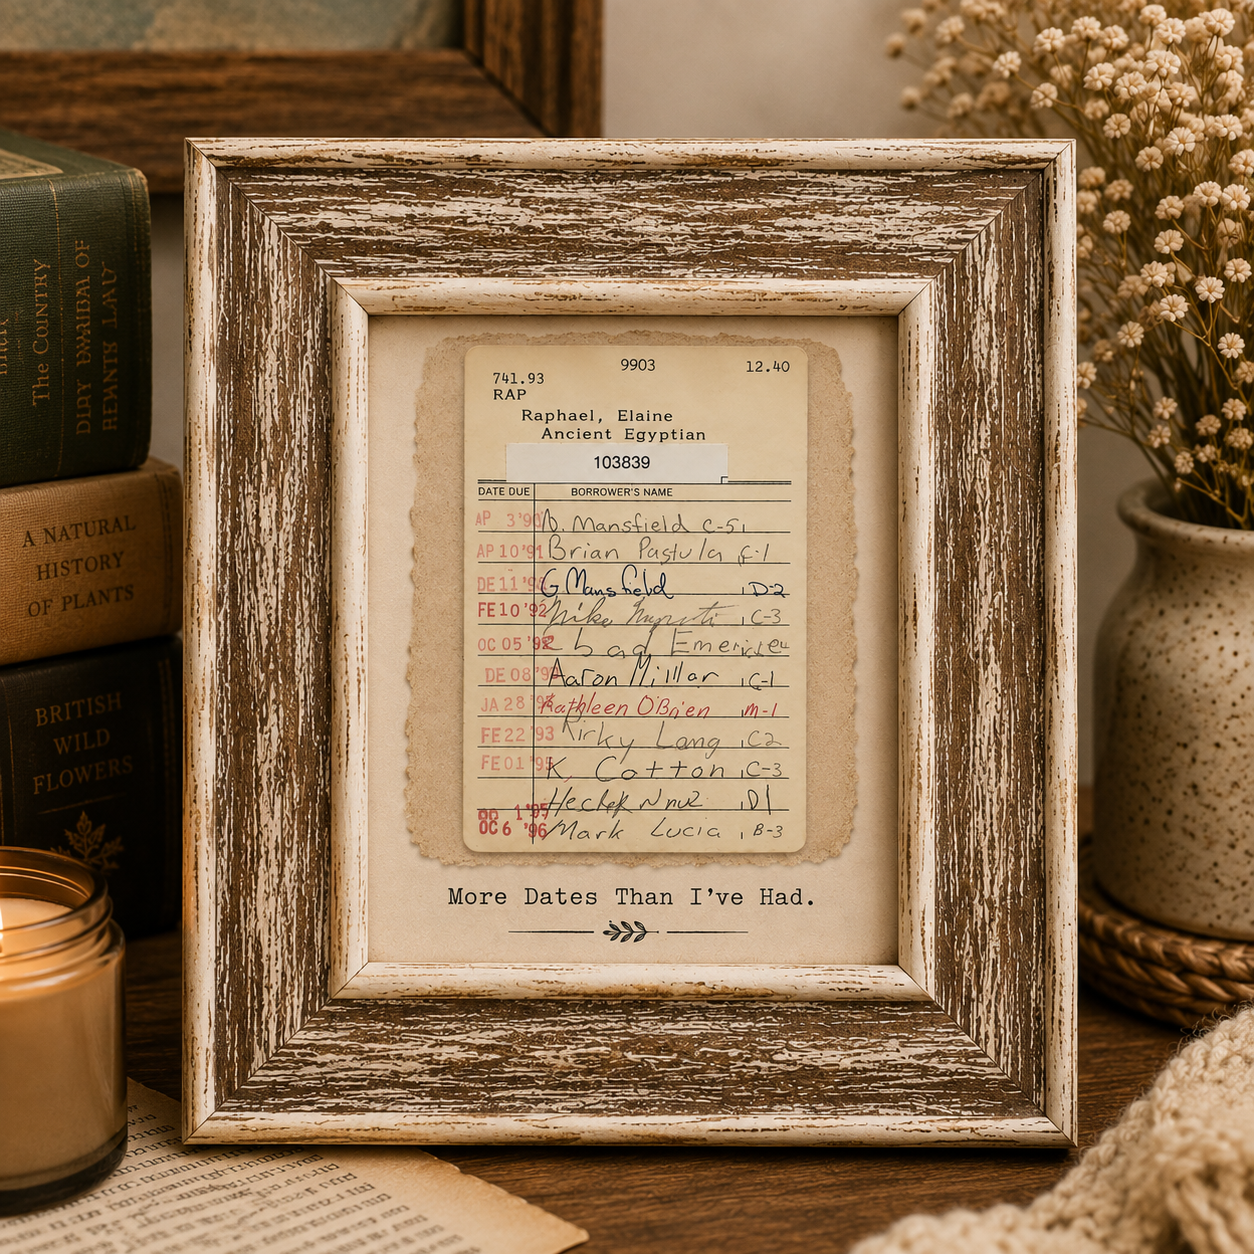 The Country
A NATURAL
HISTORY
OF PLANTS
BRITISH
WILD
FLOWERS
9903 12.40
741.93
RAP
Raphael, Elaine
Ancient Egyptian
103839
DATE DUE BORROWER'S NAME
AP 3 '90 Mansfield C-51
AP 10 '91 Brian Pastula
DE 11 G Mansfield D-2
FE 10 '92 Mike C-3
OC 05
DE 08 Aaron Millar C-1
JA 28 Kathleen O'Brien M-1
FE 22 '93 Kirky Long C2
FE 01 K. Cotton C-3
1 '95 D1
OC 6 '96 Mark Lucia B-3
More Dates Than I've Had.